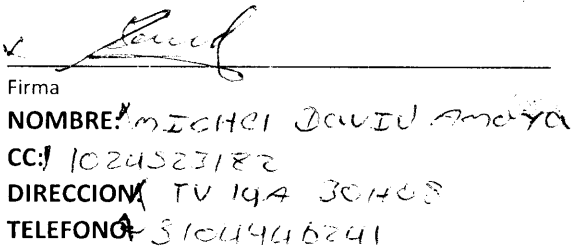 Firma
NOMBRE: MICHEl DAVID AMAYA
CC: 1024523182
DIRECCION: TV 19A 30H08
TELEFONO: 3104446241